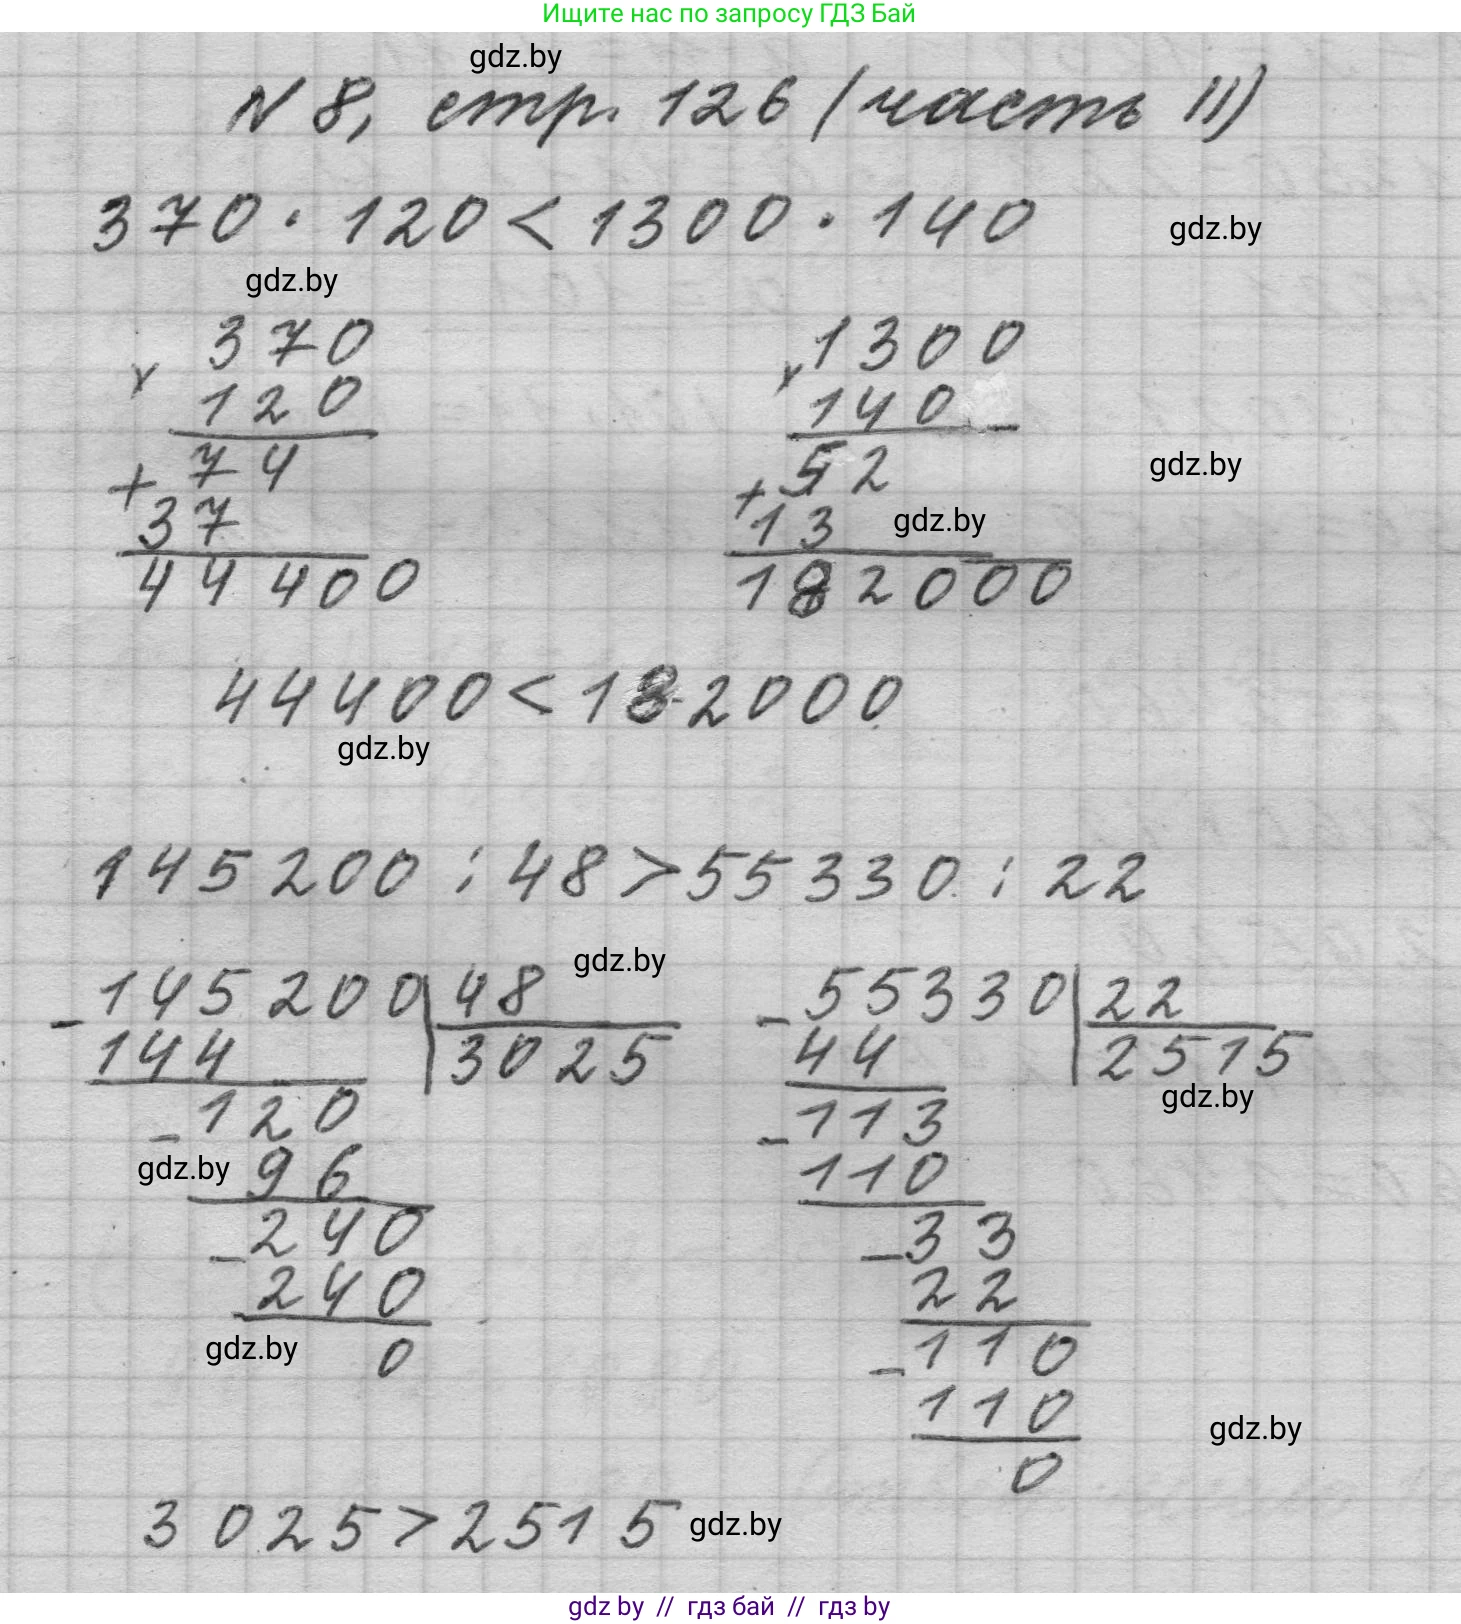 Ищите нас по запросу ГДЗ Бай
gdz.by
N 8, стр. 126 (часть II)
370 · 120 < 1300 · 140
gdz.by
gdz.by
370
× 120
74
+ 37
44400
1300
× 140
52
gdz.by
+ 13
gdz.by
182000
44400 < 182000
gdz.by
145200 : 48 > 55330 : 22
gdz.by
- 145200 | 48
144 3025
- 120
gdz.by 96
- 240
240
gdz.by 0
- 55330 | 22
44 2515
gdz.by
- 113
110
- 33
22
- 110
110
gdz.by
0
3025 > 2515 gdz.by
gdz by // гдз бай // гдз by